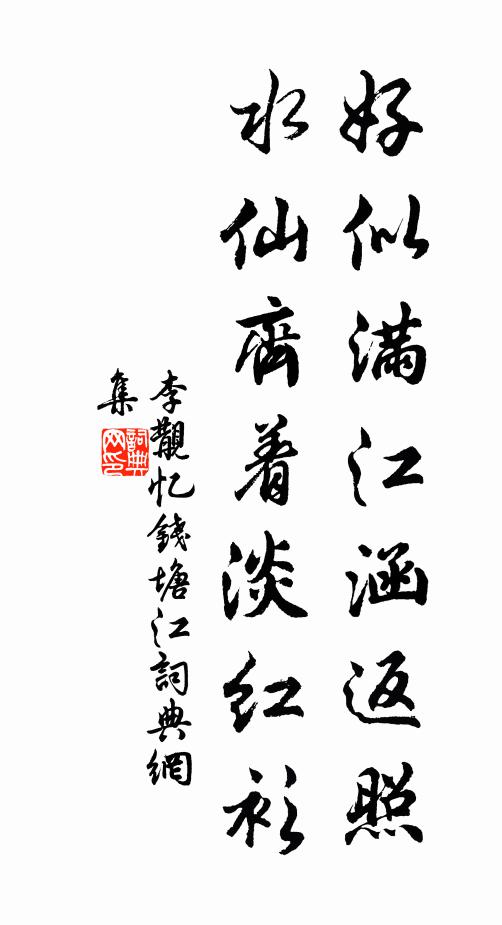 好似满江涵返照
水仙齊着淡红衫
李覯忆錢塘江詞典網
集
詞典网印